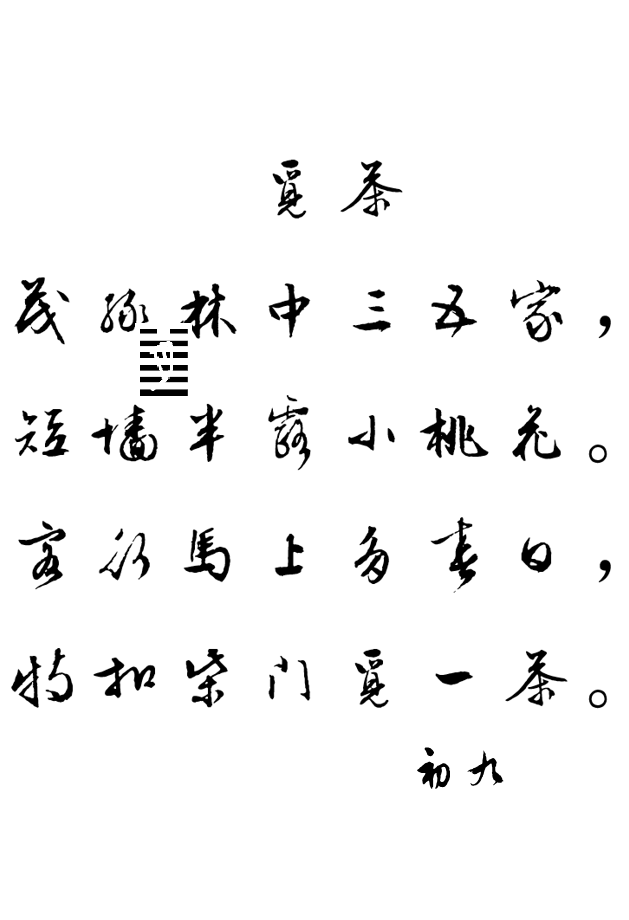 觅茶
茂绿林中三五家，
短墙半露小桃花。
客行馬上多春日，
特扣柴门觅一茶。
初九